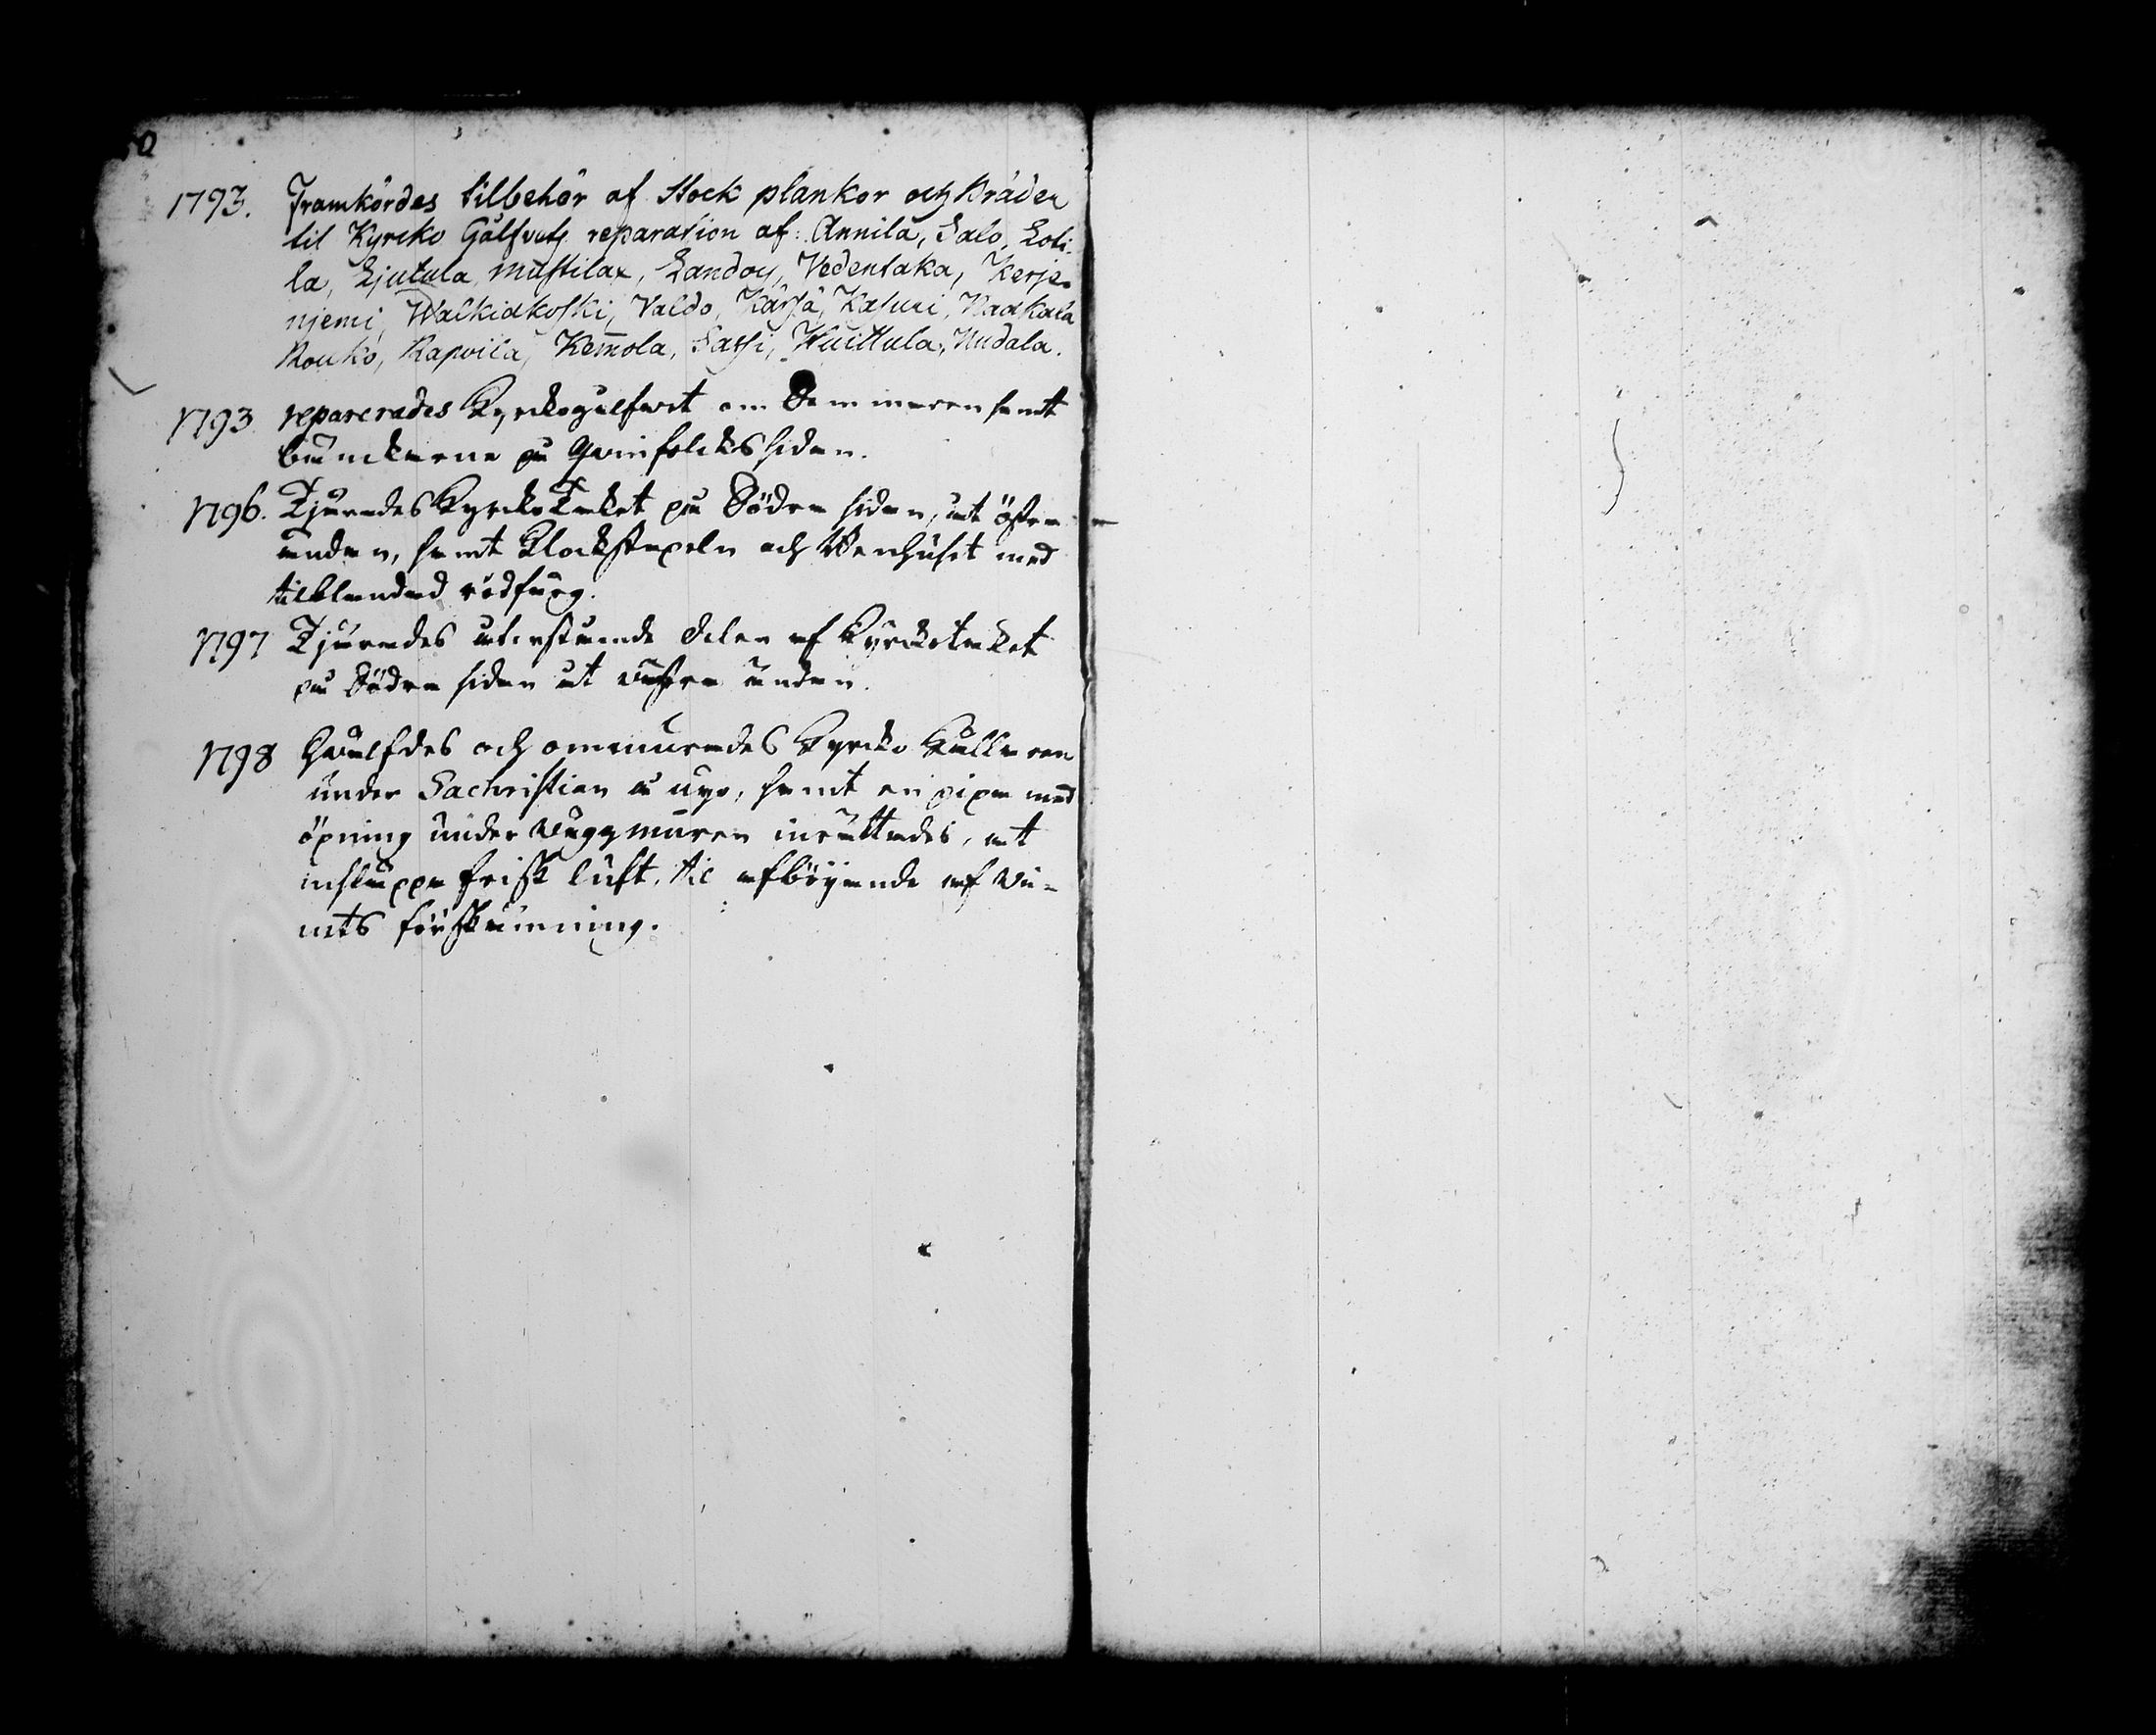 1793. Framkördes tilbehör af Stock plankor och Bräder
til Kyrcko Gålfvets reparation af: Annila, Salo, Loti-
la, Ljutula, Mustilax, Landoy, Vedentaka, Kerje-
njemi, Walkiakoski, Valdo, Kärsä, Kasuri,
Rouko, Rapoila, Kem̄ola, Sassi, Wuittula, Nudala.
1793 reparerades Kyrckogålfwet om Sommaren samt
bänckarne på Qvinfolcks sidan.
1796. Tjärades KyrckoTaket på Södra sidan, åt östra
ändan, samt Klockstapeln och Wenhuset med
tilblandad rödfärg.
1797 Tjärades återstående delen af Kyrckotaket
på Södra sidan åt västra ändan.
1798 Hvälfdes och ommurades Kyrcko Källaren
under Sachristian å nyo, samt en pipa med
öpning under väggmuren inrättades, at
inslæppa frisk luft, til afböjande af Vi-
nets förskämning.